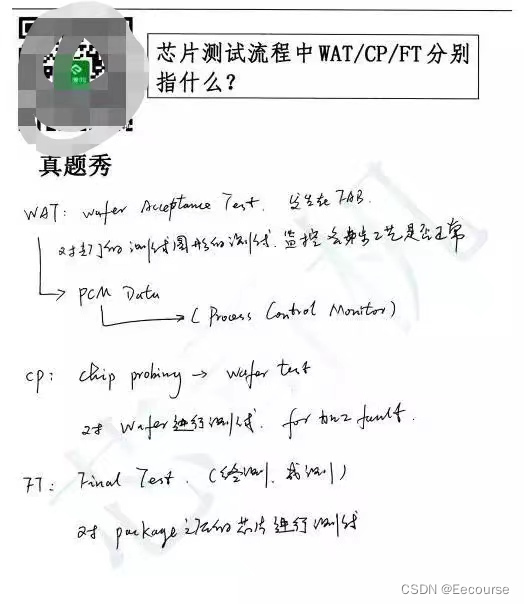 芯片测试流程中 WAT/CP/FT 分别
指什么？
真题秀
WAT: Wafer Acceptance Test. 发生在 FAB.
对专门的测试图形的测试. 监控各步工艺是否正常
PCM Data
(Process Control Monitor)
CP: Chip probing → wafer test
对 Wafer 进行测试. for
fault.
FT: Final Test. (终测、成测)
对 package 之后的芯片进行测试
CSDN @Eecourse